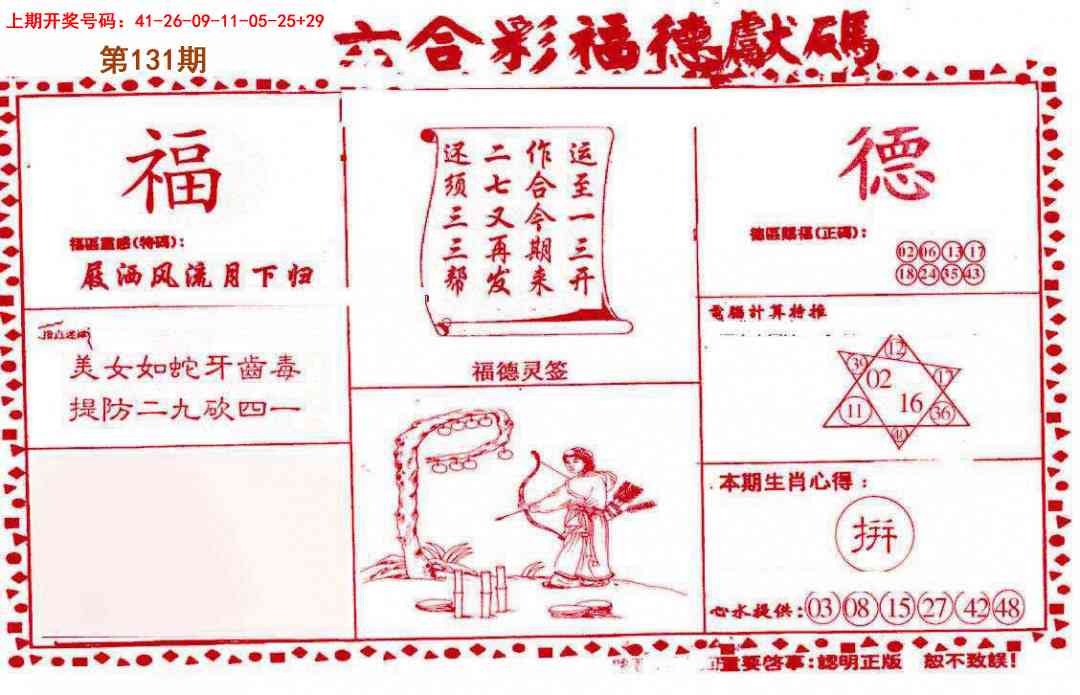 上期开奖号码：41-26-09-11-05-25+29
第131期
六合彩福德獻碼
福
福區靈感(特碼)：
屐洒风流月下归
美女如蛇牙齒毒
提防二九砍四一
运至一三开
作合今期来
二七又再发
还须三三帮
福德灵签
德
德區賜福(正碼)：
02 06 13 17
18 24 35 43
電腦計算特推
12
39 02 17
11 16 36
40
本期生肖心得：
拼
心水提供：03 08 15 27 42 48
重要啓事：認明正版 恕不致誤！